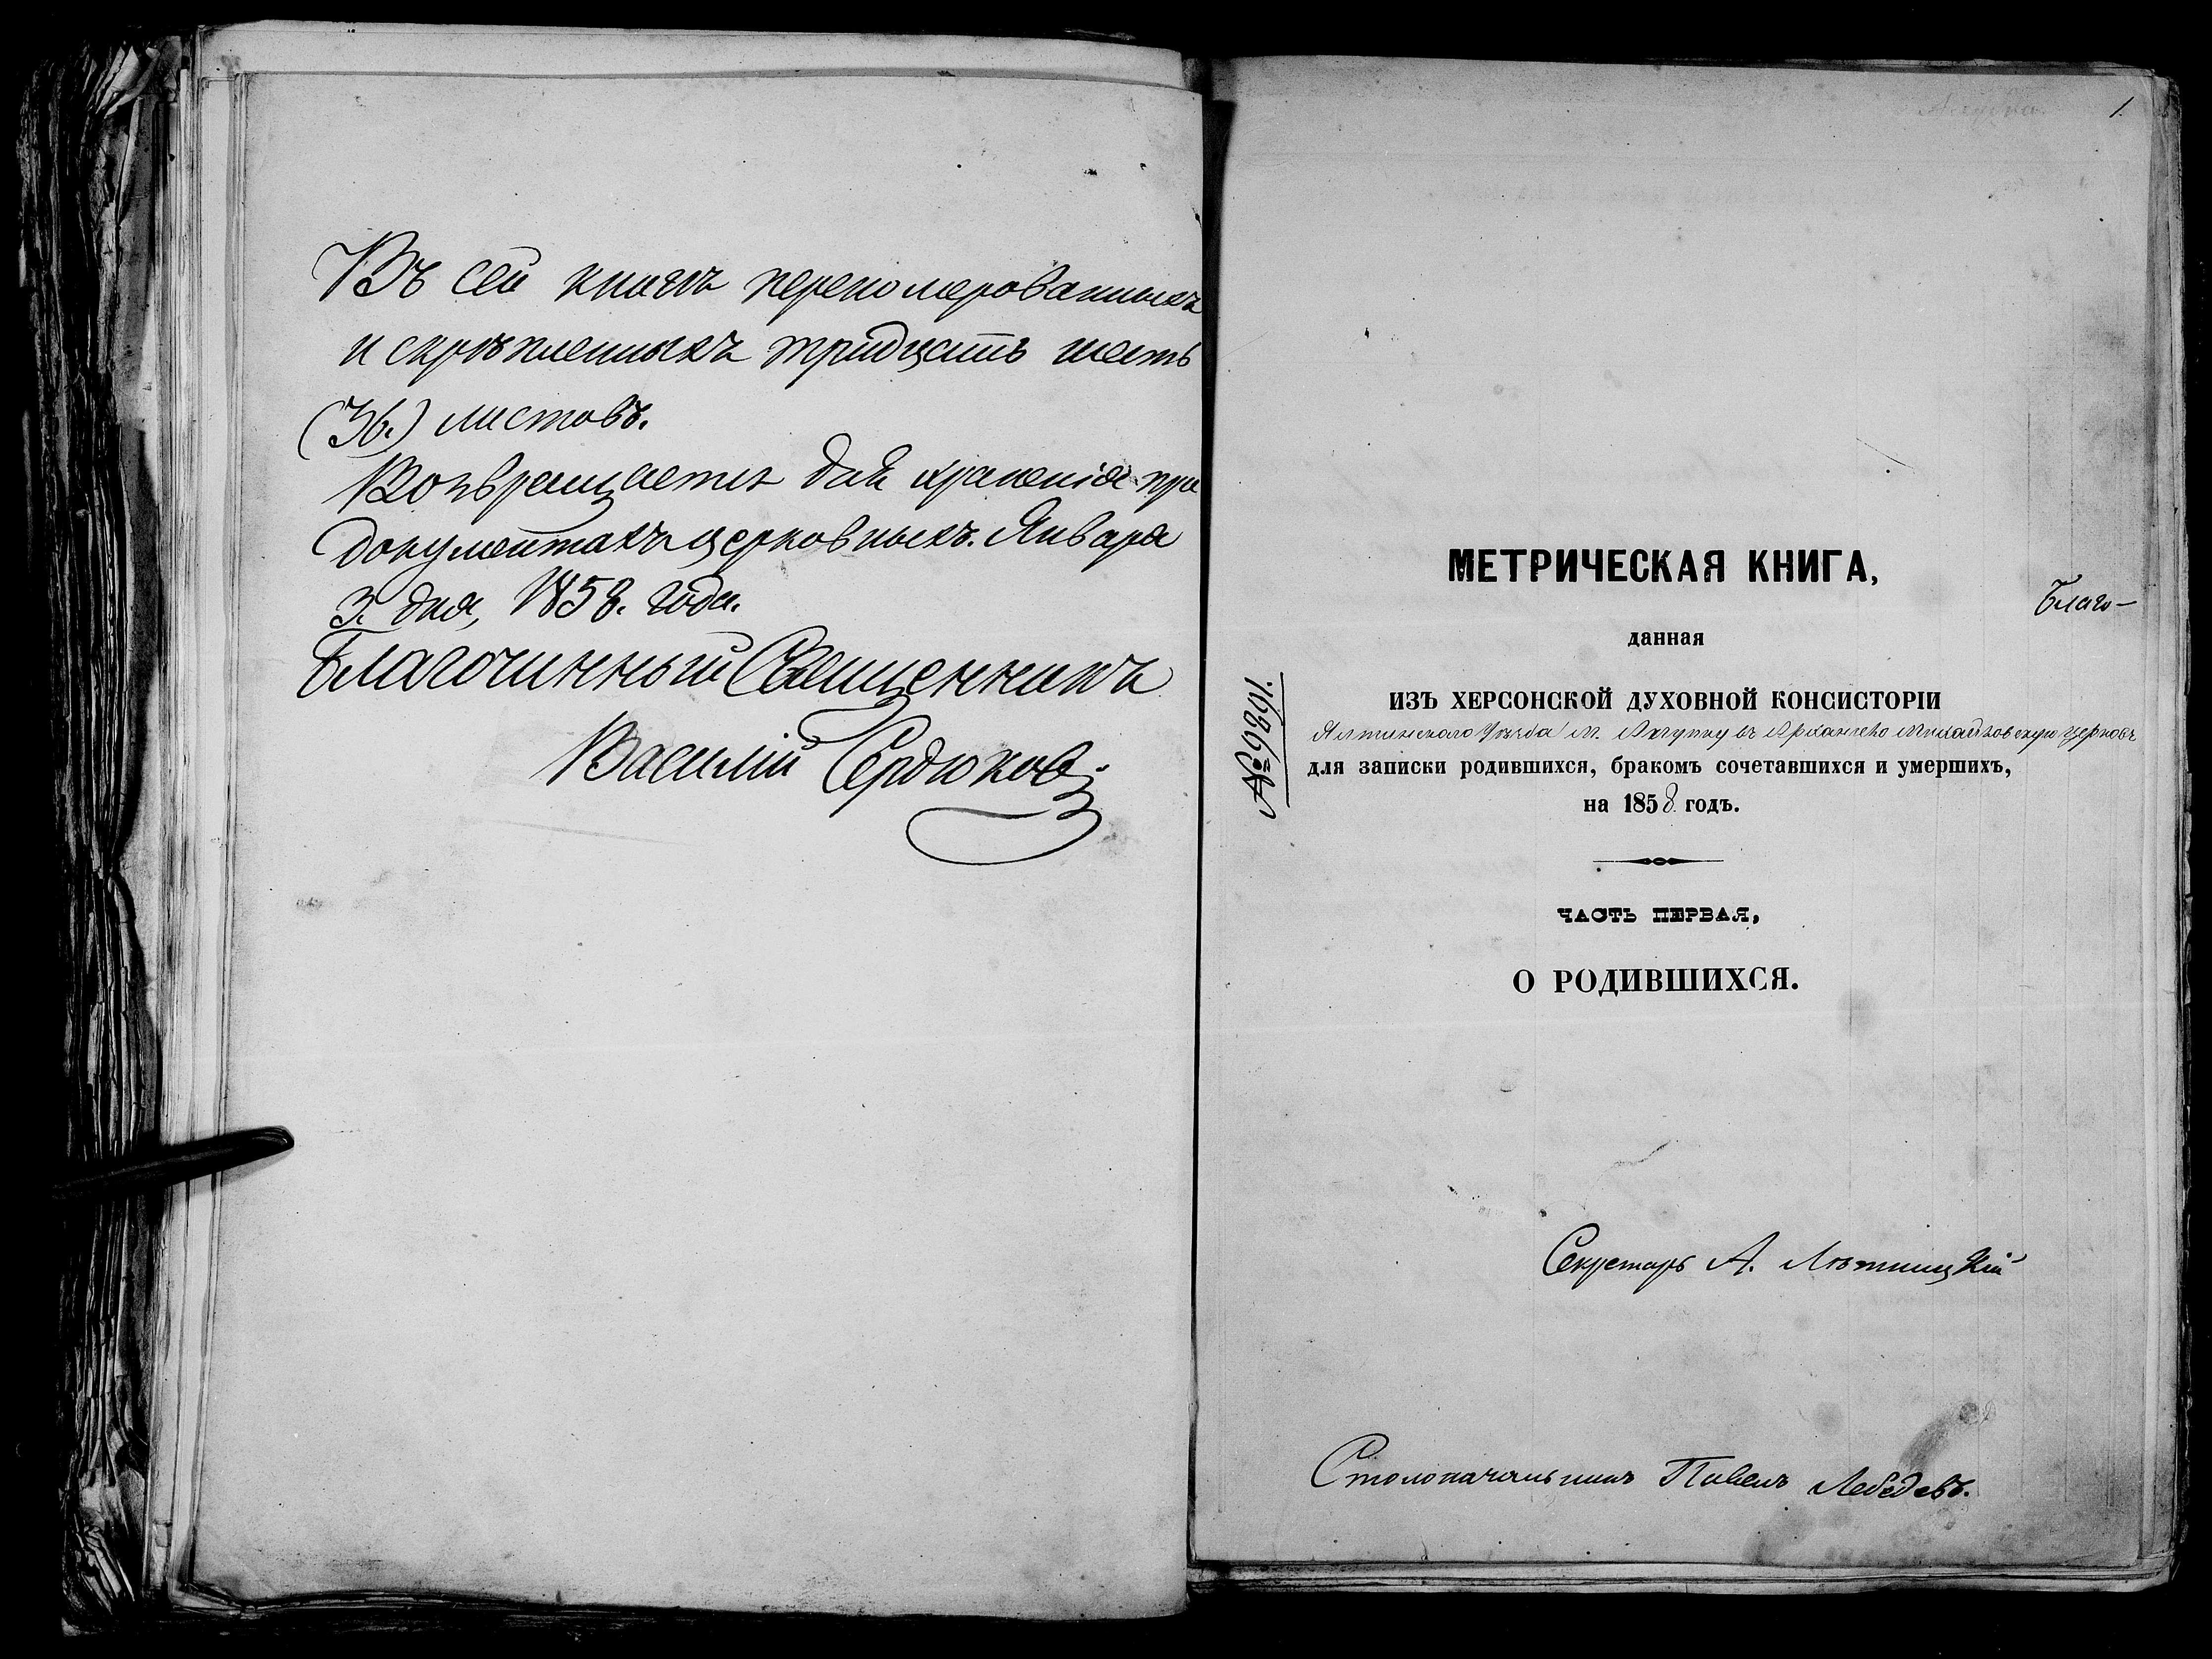 Въ сей книгѣ переномерованныхъ
и скрѣпленныхъ тридцать шесть
(36.) листовъ.
Возвращается для храненія при
документахъ церковныхъ. Января
3. дня, 1858. года.
Благочинный Священникъ
Василій Сердюковъ
1.
МЕТРИЧЕСКАЯ КНИГА,
Благо-
данная
ИЗЪ ХЕРСОНСКОЙ ДУХОВНОЙ КОНСИСТОРІИ
Ялтинского Уѣзда м. Алупку въ Архангело Михайловскую церковь
для записки родившихся, бракомъ сочетавшихся и умершихъ,
на 1858 годъ.
№ 10826.
ЧАСТЬ ПЕРВАЯ,
О РОДИВШИХСЯ.
Секретарь А. Лѣтницкій
Столоначальникъ Павелъ Лебедевъ.